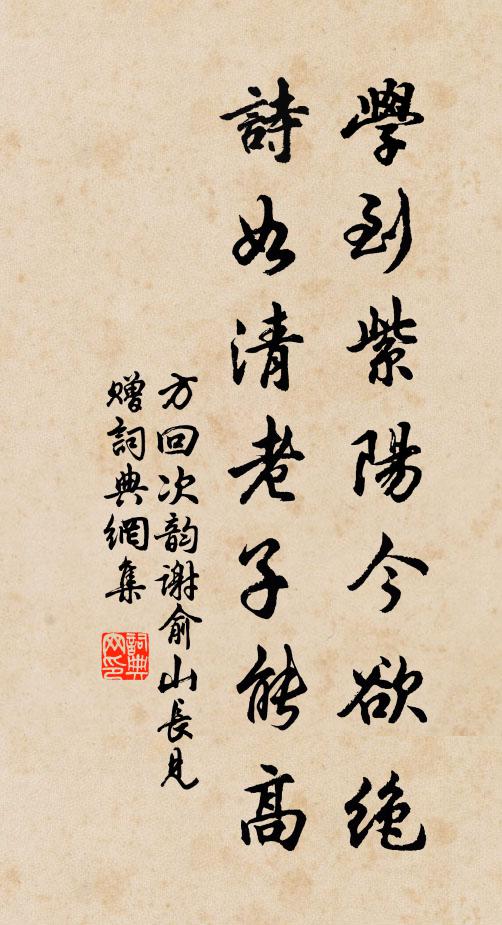 學到紫陽今欲絶
詩如清老子能高
方回次韵謝俞山長見
贈詞典網集
詞典網印